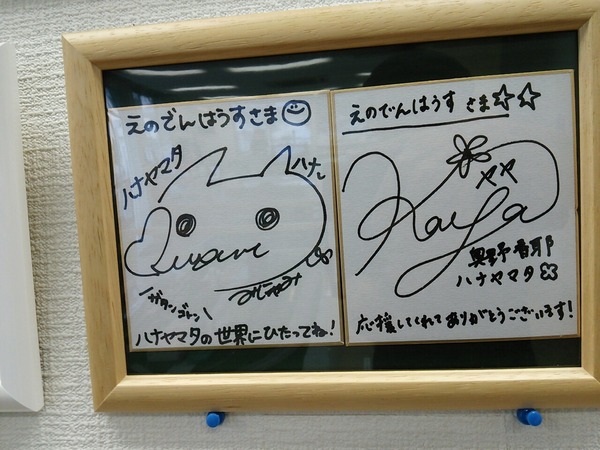 えのでんはうすさま
ハナヤマタ
ハナ
ハナヤマタの世界にひたってね!
えのでんはうす さま☆☆
ヤヤ
Kaya
奥野香耶
ハナヤマタ
応援してくれてありがとうございます!